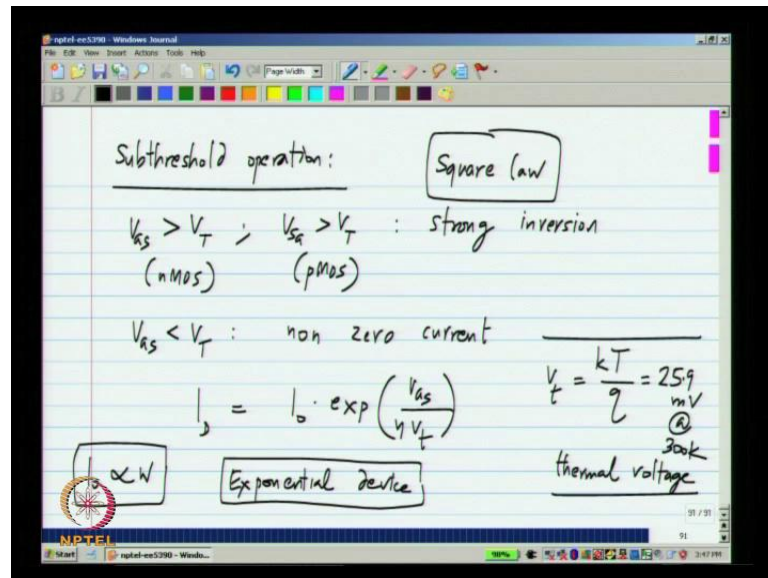 nptel-ee5390 - Windows Journal
File Edit View Insert Actions Tools Help
Page Width
B I
Subthreshold operation: Square law
V_GS > V_T ; V_SG > V_T : strong inversion
(nMOS) (pMOS)
V_GS < V_T : non zero current
I_D = I_0 · exp(V_GS / ηV_t)
V_t = kT/q = 25.9 mV @ 300K
thermal voltage
I_0 ∝ W Exponential device
NPTEL
91 / 91
91
Start nptel-ee5390 - Windo... 98% 3:47 PM